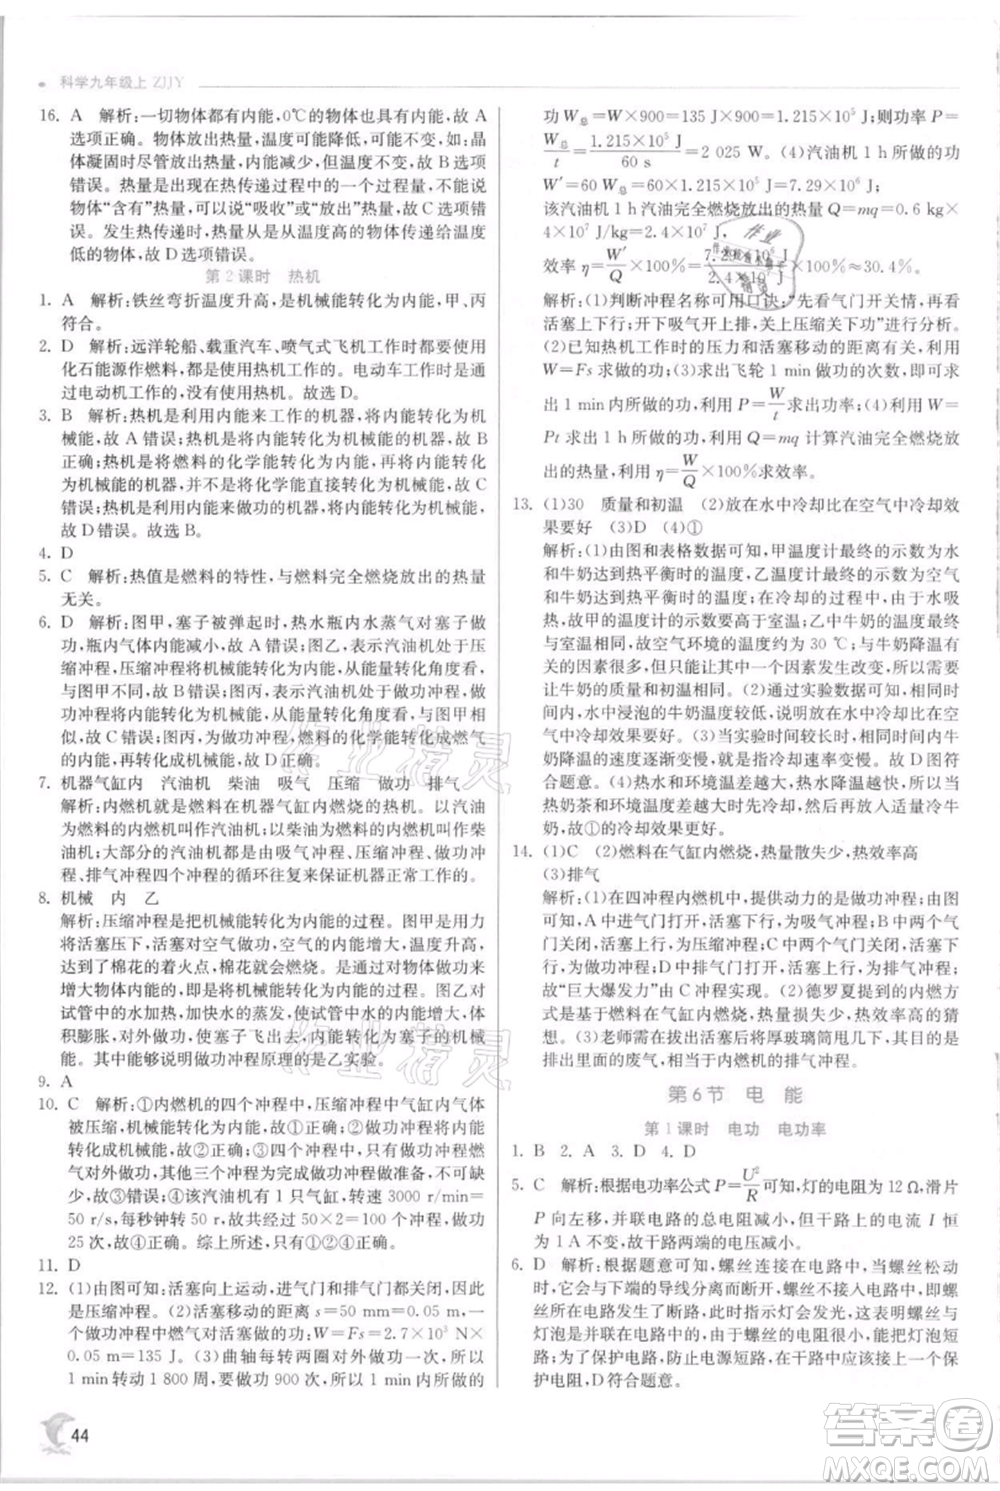 科学九年级上 ZJJY
16. A 解析:一切物体都有内能,0℃的物体也有内能,故 A
选项正确。物体放出热量,温度可能降低,可能不变,如:晶
体凝固时尽管放出热量,内能减少,但温度不变,故 B 选项
错误。热量是在热传递过程中的一个过程量,不能说一个
物体“含有”热量,可以说“吸收”或“放出”热量,故 C 选项错
误。发生热传递时,热量总是从温度高的物体传递给温度
低的物体,故 D 选项错误。
第 2 课时 热机
1. A 解析:铁丝弯折温度升高,是机械能转化为内能,甲、丙
符合。
2. D 解析:远洋轮船、载重汽车、喷气式飞机工作时都使用
化石能源作燃料。电动车工作时,使用的是电能,它是通过
电动机工作的,没有使用热机。故选 D。
3. B 解析:热机是利用内能来工作的机器,将内能转化为机
械能,故 A 错误;热机是将内能转化为机械能的机器,故 B
正确;热机是将燃料的化学能转化为内能,再将内能转化为
机械能,不是将化学能直接转化为机械能的机器,故 C 错
误;热机是利用内能工作的机器,不是利用电能工作的机器,
故 D 错误。故选 B。
4. D
5. C 解析:热值是燃料的特性,与燃料完全燃烧放出的热量
无关。
6. D 解析:图甲,塞子被弹起时,热水瓶内水蒸气对塞子做
功,瓶内气体内能减小,故 A 错误;图乙,表示汽油机处于压
缩冲程,压缩冲程将机械能转化为内能,从能量转化角度看,
与图甲不同,故 B 错误;图丙,表示汽油机处于做功冲程,做
功冲程将内能转化为机械能,从能量转化角度看,与图甲相
似,故 C 错误;图丙,做功冲程,燃料的化学能转化成燃气的
内能,再转化成机械能,故 D 正确。
7. 机器气缸内 汽油机 柴油 吸气 压缩 做功 排气
解析:内燃机就是燃料在机器气缸内燃烧的热机。以汽油
为燃料的内燃机叫作汽油机;以柴油为燃料的内燃机叫作柴
油机;大部分汽油机和柴油机都是由吸气冲程、压缩冲程、做
功冲程、排气冲程四个冲程的循环往复来保证机器工作的。
8. 机械 内 乙
解析:压缩冲程是把机械能转化为内能的过程。图甲用力
将活塞压下,活塞对空气做功,空气的内能增大,温度升高,
达到了棉花的着火点,棉花就会燃烧。是通过对物体做功来
增大物体内能的,是机械能转化为内能的过程。图乙对
试管中的水加热,加快水的蒸发,使试管中水的内能增大,体
积膨胀,对外做功,使塞子飞出去,水的内能转化为塞子的机械
能。故能说明做功冲程原理的是乙实验。
9. A
10. C 解析:①内燃机的四个冲程中,压缩冲程是气缸内气体
被压缩,①正确;②在内燃机的四个冲程中,只有做功冲程
对外做功,故②正确;③内燃机的四个冲程中,做功冲程燃
气对外做功,其余三个冲程为做功冲程做准备,不对外做
功,故③错误;④该汽油机只有 1 个气缸,转速 3000 r/min=
50 r/s,每秒钟转 50 圈,四个冲程飞轮转 2 圈,每秒做功
25 次,故④正确。综上所述,①②④正确。
11. D
12. (1)由图可知:活塞向上运动,进气门和排气门都关闭,所以
是压缩冲程。(2)活塞移动的距离 s=50 mm=0.05 m,一个
做功冲程中燃气对活塞做的功:W=Fs=2.7×10³ N×
0.05 m=135 J。(3)曲轴每转两圈对外做功一次,所以
1 min转动 1 800 周,可做功 900 次,所以 1 min 内做的
功 W总=W×900=135 J×900=1.215×10⁵ J,功率 P=
W总/t=1.215×10⁵ J/60 s=2 025 W。(4)汽油机 1 h 所做的功
W′=60 W总=60×1.215×10⁵ J=7.29×10⁶ J
该汽油机 1 h 汽油完全燃烧放出的热量 Q=mq=0.6 kg×
4×10⁷ J/kg=2.4×10⁷ J,
效率 η=W′/Q=7.29×10⁶ J/2.4×10⁷ J≈30.4%。
解析:(1)判断冲程名称可用口诀:“先看气门开关情,再看
活塞上下行;开下吸气开上排,关上压缩关下功”进行分析。
(2)已知热机工作时的压力和活塞移动的距离,利用
W=Fs 求做的功;(3)求出飞轮 1 min 做功的次数,即可
求出 1 min 内所做的功,利用 P=W/t 求出功率;(4)利用 W=
Pt 求出 1 h 所做的功,利用 Q=mq 计算汽油完全燃烧放
出的热量,利用 η=W/Q×100%求效率。
13. (1)30 质量和初温 (2)放在水中冷却比在空气中冷却效
果要好 (3)D (4)①
解析:(1)由图和表格数据可知,甲温度计最终的示数为水
和牛奶达到热平衡时的温度,乙温度计最终的示数为空气
和牛奶达到热平衡时的温度。乙中牛奶的温度最终
与室温相同,故空气环境的温度约为 30 ℃;与牛奶降温有
关的因素很多,为防止其中一个因素发生改变,影响结论,
让牛奶的质量和初温要相同。(2)通过实验数据可知,放在
水中浸泡的牛奶温度较低,说明放在水中的冷却效果要好
一些。(3)当实验时间较长时,由图丙和表中数据可知,牛
奶降温的速度逐渐变慢,也就是冷却速率变慢。故 D 图符
合题意。(4)热水和环境温度差越大,热水降温越快,所以
热奶茶和环境温度差越大时降温快,然后再放入适量冷牛
奶,故①的冷却效果更好。
14. (1)C (2)燃料在气缸内燃烧,热量散失少,热效率高
(3)排气
解析:(1)在四冲程内燃机中,做功冲程提供动能,由图
可知,A 中进气门打开,活塞下行,是吸气冲程;B 中两个气
门关闭,活塞上行,是压缩冲程;C 中两个气门关闭,活塞下
行,是做功冲程;D 中排气门打开,活塞上行,是排气冲程,
故“巨大爆发力”由 C 冲程实现。(2)德罗夏的内燃方式
是基于燃料在气缸内燃烧,热量损失少,热效率高,所以被
广泛使用。(3)老师需在实验后将厚玻璃筒甩几下,其目的是
排出里面的废气,相当于内燃机的排气冲程。
第 6 节 电 能
第 1 课时 电功 电功率
1. B 2. A 3. D 4. D
5. C 解析:根据电功率公式 P=U²/R 可知,灯的电阻为 12 Ω,滑片
P 向左移,并联电路的总电阻减小,但干路上的电流 I 恒
为 1 A不变,故干路两端的电压减小。
6. D 解析:根据题意可知,螺丝连接在电路中,当螺丝松动
时,它会与下端的导线分离而断开,螺丝不接入电路中,即
螺丝所在电路发生了断路,此时指示灯会发光,说明螺丝与
灯泡应是并联的;由于螺丝的电阻很小,会将并联的灯泡短
路;为了保护电路,防止电流过大,应在干路中串联一个保
护电阻,D 符合题意。
44
作业精灵
作业精灵
答案卷
MXQE.COM